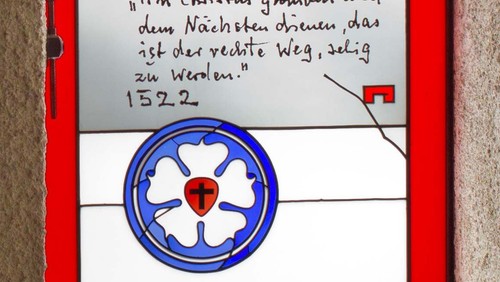 Christus glauben
dem Nächsten dienen, das
ist der rechte Weg, selig
zu werden."
1522